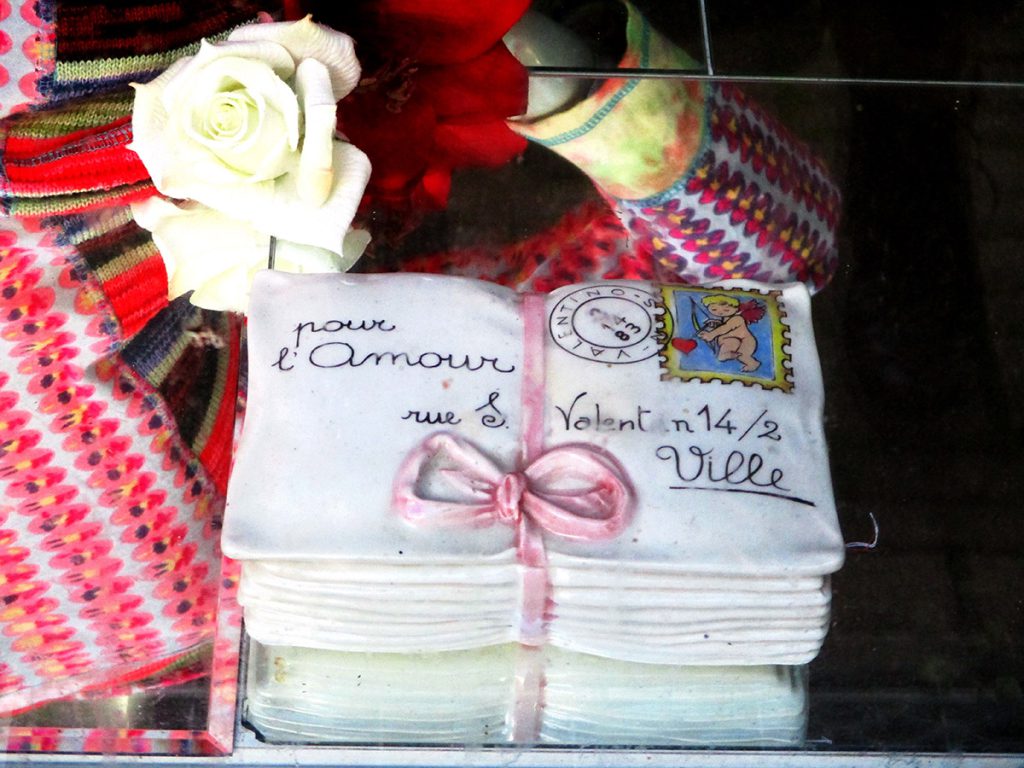 pour
l'Amour
rue S. Valent n 14/2
Ville
VALENTINO-S